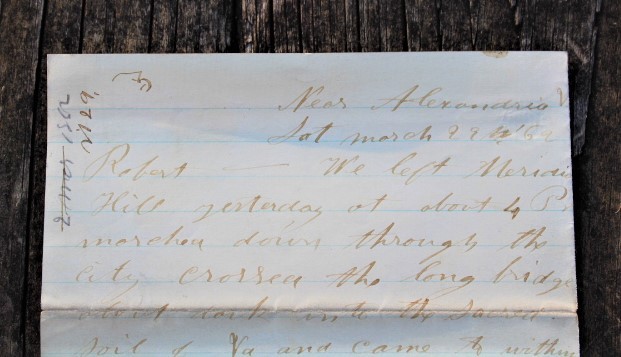 Near Alexandria V
Sat march 29th 62
Robert — We left Meridi
Hill yesterday at about 4 P.
marched down through the
city crossed the long bridge
about dark into the sacred
soil of Va and came to within